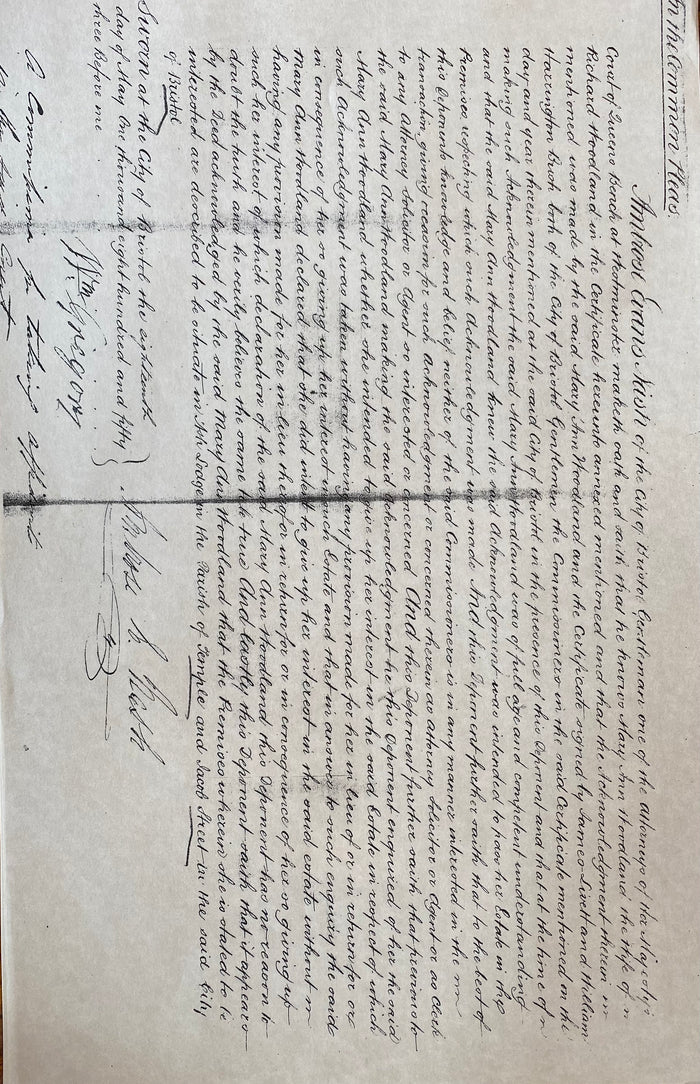 In the Common Pleas.
Ambrose Evans Nash of the City of Bristol Gentleman one of the Attorneys of Her Majesty's
Court of Queens Bench at Westminster maketh oath and saith that he knows Mary Ann Woodland the Wife of
Richard Woodland in the Certificate hereunto annexed mentioned and that the Acknowledgment therein
mentioned was made by the said Mary Ann Woodland and the Certificate signed by James Livett and William
Harrington Bush both of the City of Bristol Gentlemen the Commissioners in the said Certificate mentioned in the
day and year therein mentioned at the said City of Bristol in the presence of this Deponent and that at the time of
making such Acknowledgment the said Mary Ann Woodland was of full age and competent understanding
and that the said Mary Ann Woodland knew the said Acknowledgment was intended to pass her Estate in the
Premises respecting which such Acknowledgment was made And this Deponent further saith that to the best of
this Deponents knowledge and belief neither of the said Commissioners is in any manner interested in the
transaction giving reason for such Acknowledgment or concerned therein as Attorney Solicitor or Agent or as Clerk
to any Attorney Solicitor or Agent so interested or concerned And this Deponent further saith that previous to
the said Mary Ann Woodland making the said Acknowledgment he this Deponent enquired of her the said
Mary Ann Woodland whether she intended to give up her interest in the said Estate in respect of which
such Acknowledgment was taken without having any provision made for her in lieu of or in return for or
in consequence of her so giving up her interest in such Estate and that in answer to such enquiry the said
Mary Ann Woodland declared that she did intend to give up her interest in the said estate without
having any provision made for her in lieu thereof or in return for or in consequence of her so giving up
such her interest of which declaration of the said Mary Ann Woodland this Deponent has no reason to
doubt the truth and he verily believes the same to be true And lastly this Deponent saith that it appears
by the Deed acknowledged by the said Mary Ann Woodland that the Premises wherein she is stated to be
interested are described to be situate in the Parish of Temple and Jacob Street in the said City
of Bristol
Sworn at the City of Bristol the eighteenth
day of May One thousand eight hundred and fifty
three Before me
Wm. Gregory
A Commissioner for taking affidavits